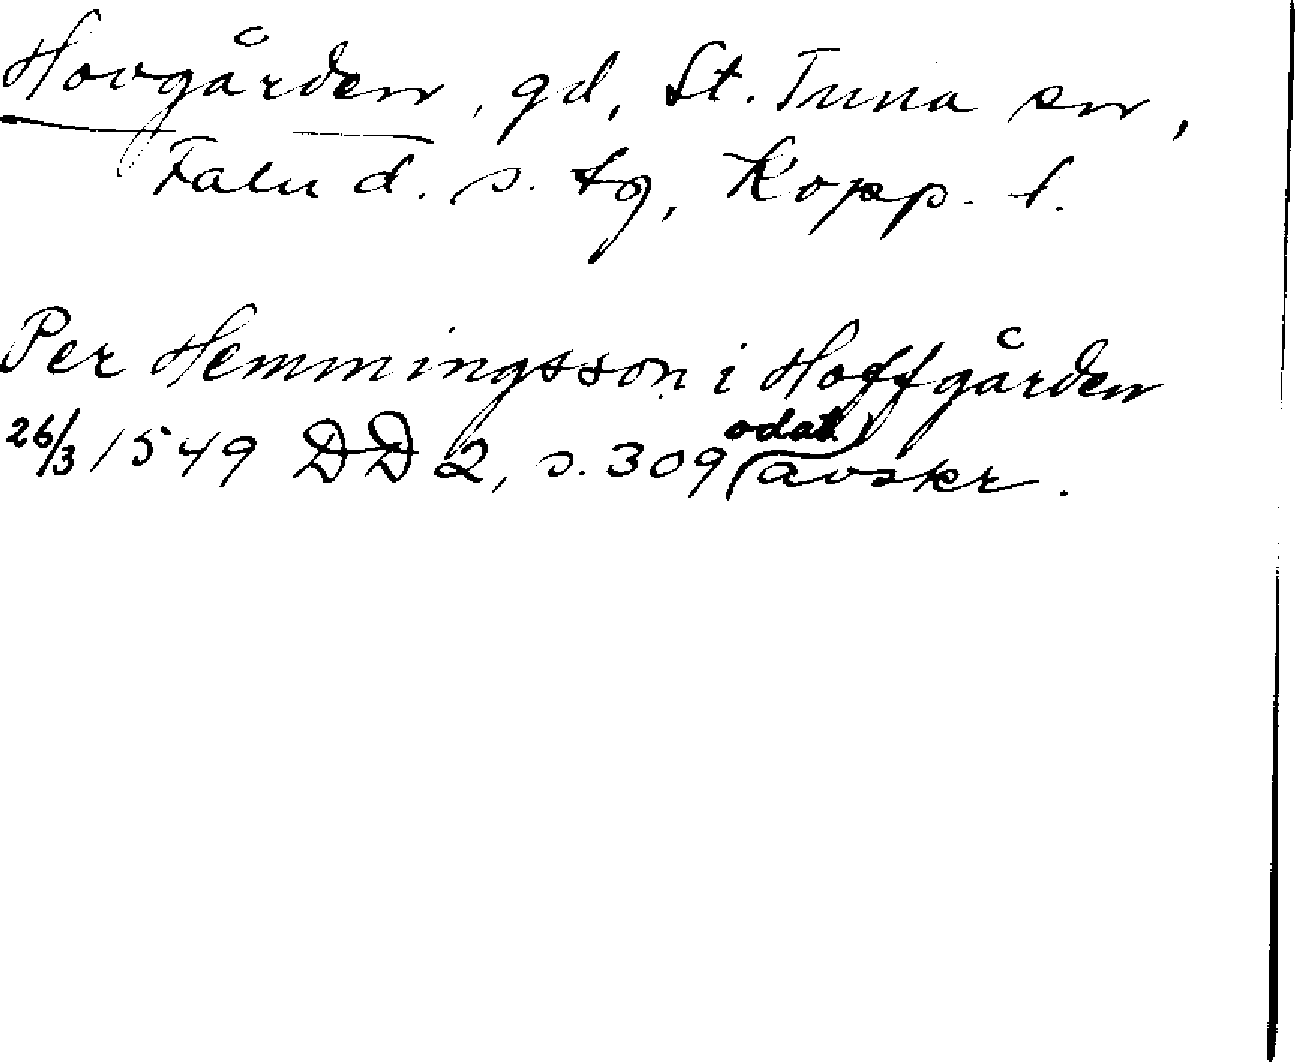 Hovgården, gd, St. Tuna sn,
Falu d. s. tg, Kopp. l.
Per Hemmingsson i Hoffgården
26/3 1549 DD 2, s. 309 (odat.) avskr.